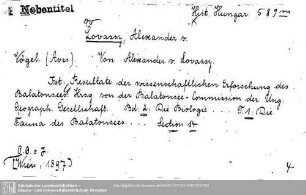 Nebentitel
Hist. Hungar 589 m
Lovassy, Alexander v.
Vögel (Aves). Von Alexander v. Lovassy.
Ist: Resultate der wissenschaftlichen Erforschung des
Balatonsees. Hrsg. von der Balatonsee-Commission der Ung.
Geograph. Gesellschaft. Bd. 2: Die Biologie... T. 1. Die
Fauna des Balatonsees... Section 14
(Wien, 1897)
4.